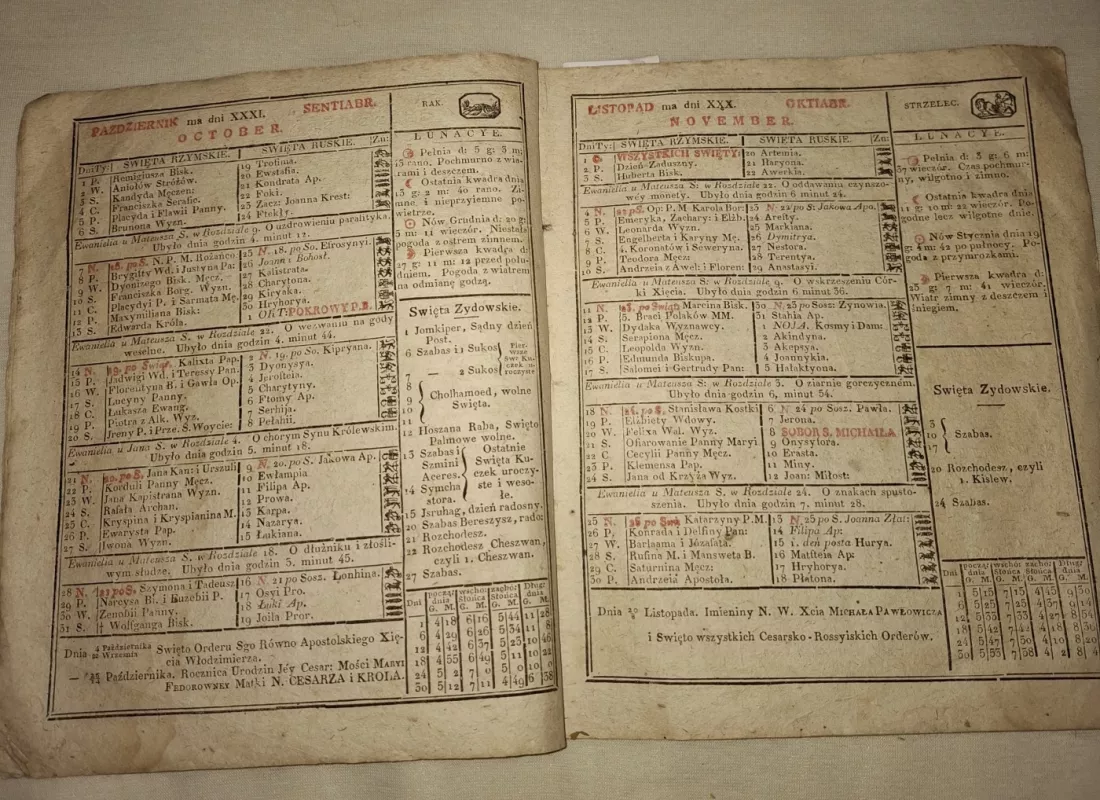 PAZDZIERNIK ma dni XXXI. SENTIABR.
OCTOBER.
Dni Ty: SWIĘTA RZYMSKIE. SWIĘTA RUSKIE. Zn:
1 P. Remigiusza Bisk. 19 Trofima.
2 W. Aniołów Stróżów. 20 Ewstafia.
3 S. Kandyda Męczen: 21 Kondrata Ap.
4 C. Franciszka Serafic. 22 Foki:
5 P. Placyda i Flawii Panny. 23 Zacz: Joanna Krest:
6 S. Brunona Wyzn. 24 Ftekły.
Ewanielia u Mateusza S. w Rozdziale 9. O uzdrowieniu paralityka.
Ubyło dnia godzin 4. minut 12.
7 N. 18. po S. N. P. M. Rożańco 25 N. 18. po So. Efrosyny.
8 P. Brygitty Wd. i Justyna Pa: 26 Joana i Bohosł.
9 W. Dyonizego Bisk. Męcz. 27 Kalistrata.
10 S. Franciszka Borg. Wyzn. 28 Charytona.
11 C. Placydyi P. i Sarmata Mę. 29 Kiryaka.
12 P. Maxymiliana Bisk: 30 Hryhorya.
13 S. Edwarda Króla. 1 OKT: POKROWY P. B.
Ewanielia u Mateusza S. w Rozdziale 22. O wezwaniu na gody
weselne. Ubyło dnia godzin 4. minut 44.
14 N. 19. po Swiąt. Kalixta Pap. 2 N. 19. po So. Kipryana.
15 P. Jadwigi Wd. i Teressy Pan. 3 Dyonysya.
16 W. Florentyna B. i Gawła Op. 4 Jerofteia.
17 S. Lucyny Panny. 5 Charytyny.
18 C. Łukasza Ewang. 6 Ftomy Ap.
19 P. Piotra z Alk. Wyz. 7 Serhija.
20 S. Jreny P. i Prze. S. Woycie: 8 Pełahii.
Ewanielia u Jana S. w Rozdziale 4. O chorym Synu Królewskim.
Ubyło dnia godzin 5. minut 18.
21 N. 20. po S. Jana Kan: i Urszuli 9 N. 20. po S. Jakowa Ap.
22 P. Korduli Panny Męcz. 10 Ewłampia
23 W. Jana Kapistrana Wyzn. 11 Filipa Ap.
24 S. Rafała Archan. 12 Prowa.
25 C. Kryspina i Kryspianina M. 13 Karpa.
26 P. Ewarysta Pap. 14 Nazarya.
27 S. Jwona Wyzn. 15 Łukiana.
Ewanielia u Mateusza S. w Rozdziale 18. O dłużniku i złośli-
wym słudze. Ubyło dnia godzin 5. minut 45.
28 N. 21 po S. Szymona i Tadeusz 16 N. 21 po Sosz. Łonhina.
29 P. Narcysa B. i Euzebii P. 17 Osyi Pro.
30 W. Zenobii Panny. 18 Łuki Ap.
31 S. † Wolfganga Bisk. 19 Joila Pror.
Dnia 4 Października / 22 Wrzesnia Swięto Orderu Sgo Równo Apostolskiego Xię-
cia Włodzimierza.
— Października. Rocznica Urodzin Jéy Cesar: Mości MARYI
FEDOROWNEY Matki N. CESARZA i KROLA.
RAK.
LUNACYE.
Pełnia d: 5 g: 3 m:
13 rano. Pochmurno z wia-
rami i deszczem.
Ostatnia kwadra dnia
13 g: 2 m: 40 rano. Zi-
mne, i nieprzyiemne po-
wietrze.
Nów. Grudnia d: 20 g:
5 m: 11 wieczór. Niestała
pogoda z ostrem zimnem.
Pierwsza kwadra d:
27 g: 11 m: 12 przed połu-
dniem. Pogoda z wiatrem
na odmianę godzą.
Swięta Zydowskie.
1 Jomkiper, Sądny dzień
Post.
6 Szabas i 1 Sukos Pier-wsze Sw: Kuczek uroczyste
7 — 2 Sukos
8 9 10 11 Cholhamoed, wolne
Swięta.
12 Hoszana Raba, Swięto
Palmowe wolne.
13 Szabas i Szmini Aceres.
14 Symcha atora.
Ostatnie Swięta Kuczek uroczyste i wesołe.
15 Jsruhag, dzień radosny.
20 Szabas Bereszysz, rado:
21 Rozchodesz.
22 Rozchodesz Cheszwan,
czyli 1. Cheszwan.
27 Szabas.
Dni początk dnia G. M. wschód Słońca G. M. zachód Słońca G. M. Długi dnia G. M.
1 4 18 6 16 5 44 11 28
6 4 29 6 26 5 34 11 8
12 4 42 6 37 5 23 10 46
18 4 55 6 49 5 11 10 22
24 5 2 7 0 5 0 10 0
30 5 12 7 11 4 49 9 38
LISTOPAD ma dni XXX. OKTIABR.
NOVEMBER.
Dni Ty: SWIĘTA RZYMSKIE. SWIĘTA RUSKIE. Zn:
1 C. WSZYSTKICH SWIĘTY: 20 Artemia.
2 P. Dzień Zaduszny. 21 Ilaryona.
3 S. Huberta Bisk. 22 Awerkia.
Ewanielia u Mateusza S: w Rozdziale 22. O oddawaniu czynszo-
wey monety. Ubyło dnia godzin 6 minut 24.
4 N. 22 po S. Op: P. M. Karola Bor: 23 N. 22 po S: Jakowa Apo.
5 P. Emeryka, Zachar: i Elżb. 24 Arefty.
6 W. Leonarda Wyzn. 25 Markiana.
7 S. Engelberta i Karyny Mę. 26 Dymitrya.
8 C. 4. Koronatów i Seweryna. 27 Nestora.
9 P. Teodora Męcz: 28 Terentya.
10 S. Andrzeia z Aweli i Floren: 29 Anastasyi.
Ewanielia u Mateusza S: w Rozdziale 9. O wskrzeszeniu Cór-
ki Xięcia. Ubyło dnia godzin 6 minut 36.
11 N. 23. po Swiąt. Marcina Bisk. 30 N. 23 po Sosz: Zynowia.
12 P. 5. Braci Polaków MM. 31 Stahia Ap.
13 W. Dydaka Wyznawcy. 1 NOJA. Kosmy i Dam:
14 S. Serapiona Męcz. 2 Akindyna.
15 C. Leopolda Wyzn. 3 Akepsya.
16 P. Edmunda Biskupa. 4 Joannykia.
17 S. Salomei i Gertrudy Pan: 5 Hałaktyona.
Ewanielia u Mateusza S: w Rozdziale 3. O ziarnie gorczycznem.
Ubyło dnia godzin 6, minut 54.
18 N. 24. po S. Stanisława Kostki 6 N. 24 po Sosz. Pawła.
19 P. Elżbiety Wdowy. 7 Jerona.
20 W. Felixa Wal. Wyz. 8 SOBOR S. MICHAIŁA
21 S. Ofiarowanie Panny Maryi 9 Onysyfora.
22 C. Cecylii Panny Męcz. 10 Erasta.
23 P. Klemensa Pap. 11 Miny.
24 S. Jana od Krzyża Wyz. 12 Joan: Miłost:
Ewanielia u Mateusza S. w Rozdziale 24. O znakach spusto-
szenia. Ubyło dnia godzin 7. minut 28.
25 N. 25 po Swą Katarzyny P. M. 13 N. 25 po S. Joanna Złat:
26 P. Konrada i Delfiny Pan: 14 Filipa Ap:
27 W. Barlaama i Józafata. 15 1. den posta Hurya.
28 S. Rufina M. i Mansweta B. 16 Matfteia Ap:
29 C. Saturnina Męcz: 17 Hryhorya.
30 P. Andrzeia Apostoła. 18 Płatona.
Dnia Listopada. Imieniny N. W. Xcia MICHAŁA PAWŁOWICZA
i Swięto wszystkich Cesarsko - Rossyiskich Orderów.
STRZELEC.
LUNACYE.
Pełnia d: 3 g: 6 m:
37 wieczór. Czas pochmur-
ny, wilgotno i zimno.
Ostatnia kwadra dnia
11 g: 10 m: 22 wieczór. Po-
godne lecz wilgotne dnie.
Nów Stycznia dnia 19
g: 4 m: 42 po pułnocy. Po-
goda z przymrozkami.
Pierwsza kwadra d:
25 g: 7 m: 41 wieczór.
Wiatr zimny z deszczem i
śniegiem.
Swięta Zydowskie.
3 10 17 Szabas.
20 Rozchodesz, czyli
1. Kislew.
24 Szabas.
Dni początk dnia G. M. wschód Słońca G. M. zachód Słońca G. M. Długi dnia G. M.